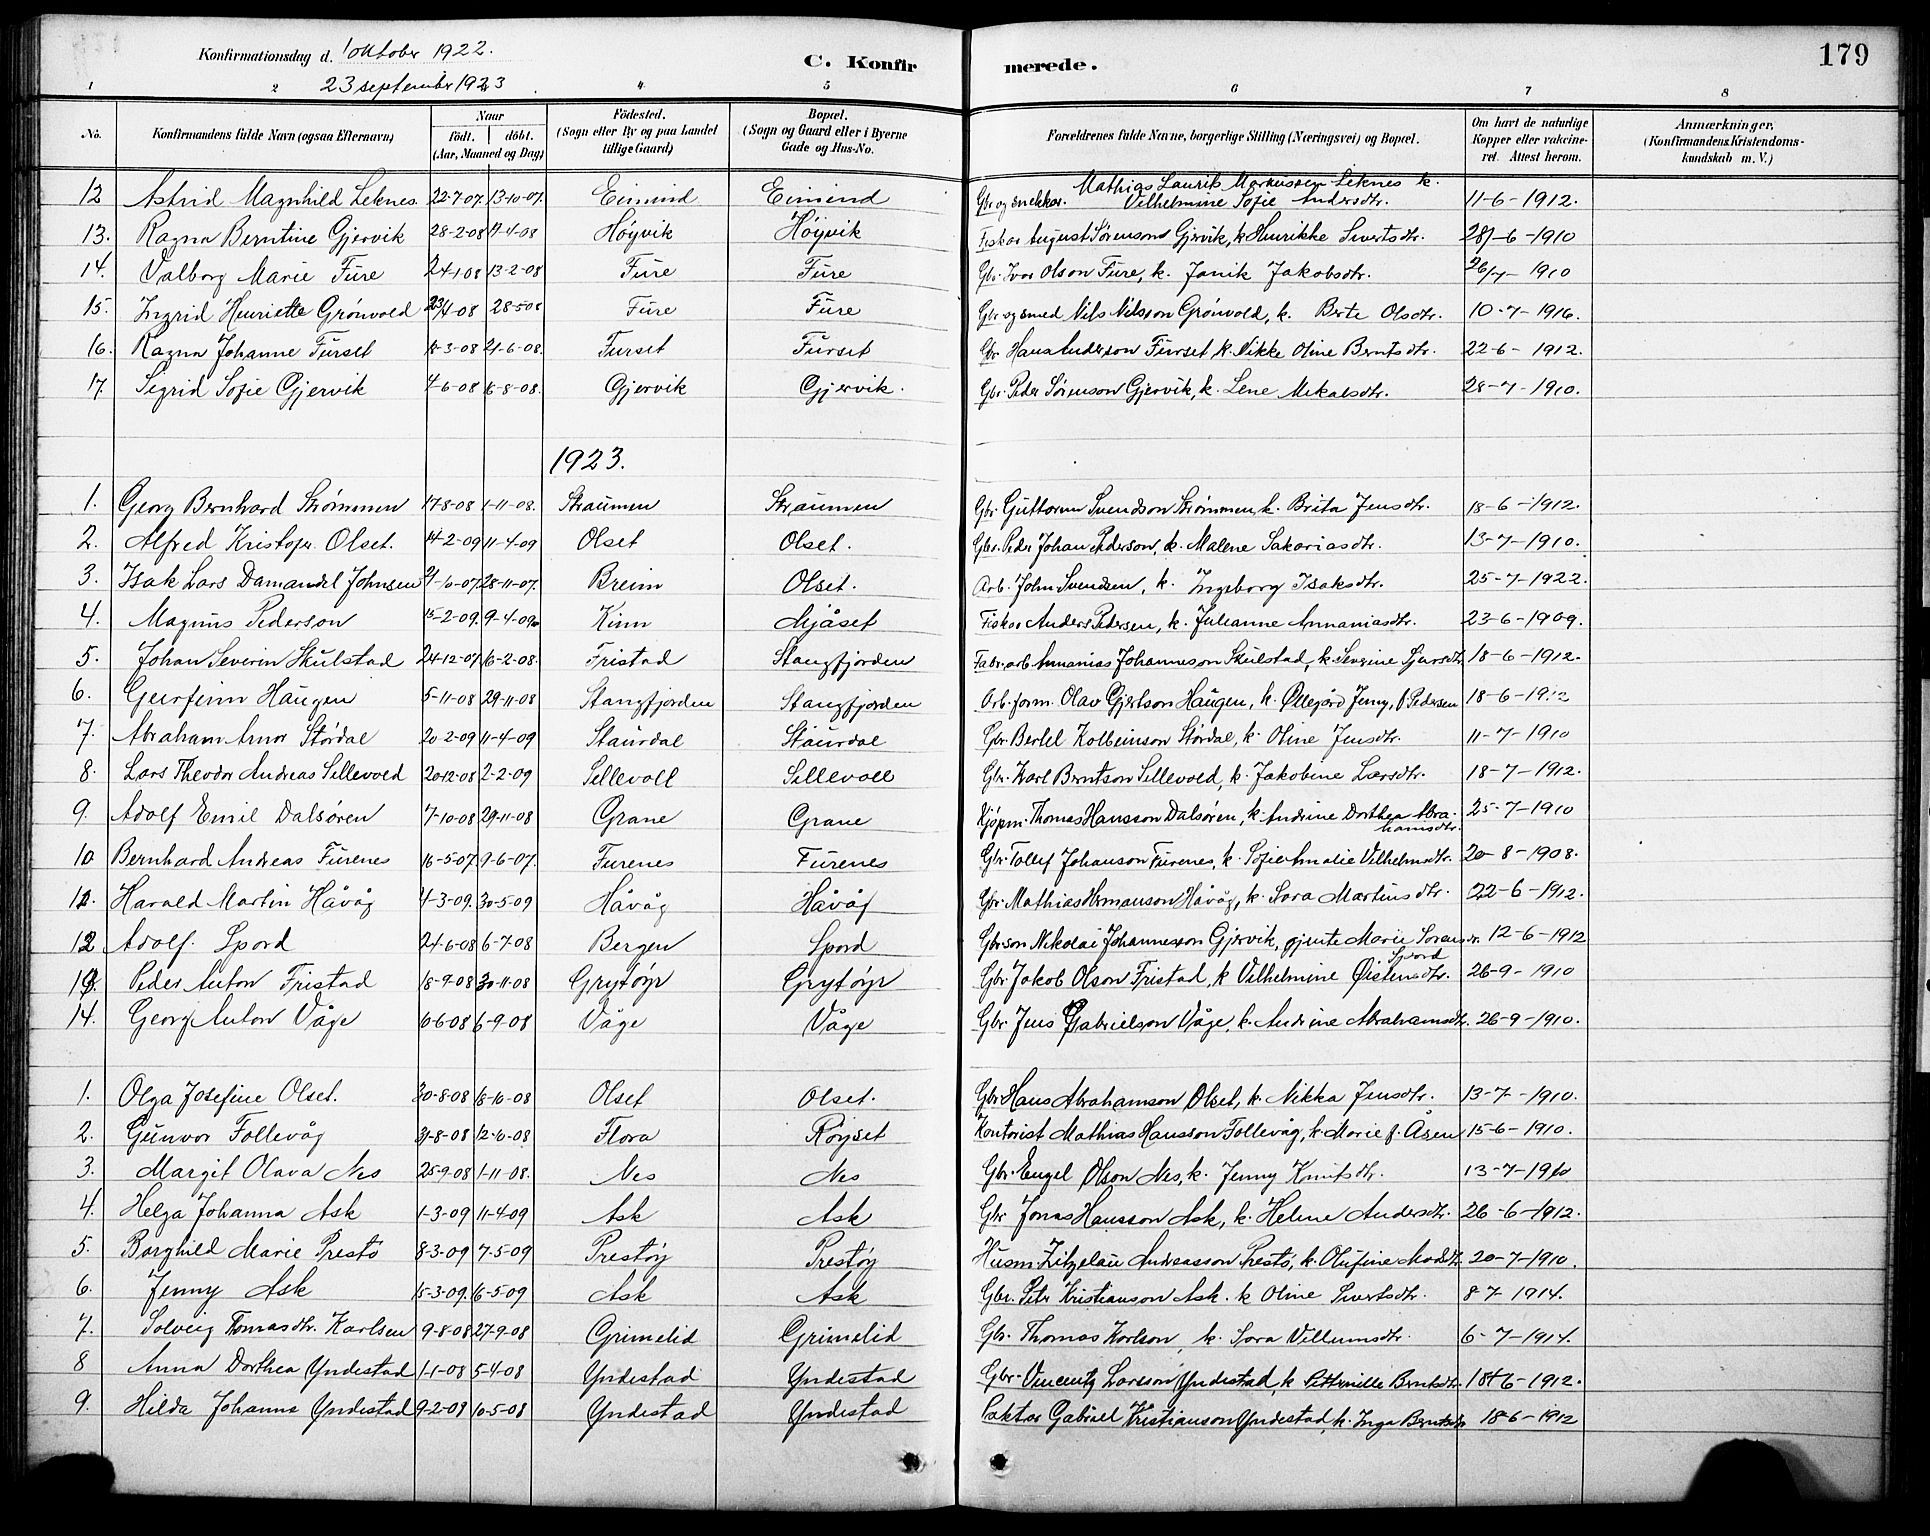 179
Konfirmationsdag d. 1 oktober 1922.
23 september 1923
C. Konfirmerede.
1 2 4 5 6 7 8
No.
Konfirmandens fulde Navn (ogsaa Efternavn)
Naar
født. døbt.
(Aar, Maaned og Dag)
Fødested.
(Sogn eller By og paa Landet
tillige Gaard)
Bopæl.
(Sogn og Gaard eller i Byerne
Gade og Hus-No.
Forældrenes fulde Navne, borgerlige Stilling (Næringsvei) og Bopæl.
Om havt de naturlige
Kopper eller vakcine-
ret. Attest herom.
Anmærkninger.
(Konfirmandens Kristendoms-
kundskab m. V.)
12 Astrid Magnhild Leknes 22-7-07. 13-10-07. Eimind Eimind Gbr og snekker. Mathias Laurits Markussen Leknes k. Vilhelmine Sofie Andersdtr. 11-6-1912.
13. Ragna Berntine Gjervik 28-2-08 Høyvik Høyvik Fisker August Sørenson Gjervik, k Henrikke Sivertsdtr. 28-6-1910
14. Valborg Marie Fure 24-1-08 13-2-08 Fure Fure Gbr. Ivar Olson Fure, k. Janik Jakobsdtr. 26/7-1910
15. Ingrid Henriette Grönvold 28-5-08 Fure Fure Gbr og smed Nils Nilsson Grönvold, k. Berte Olsdtr. 10-7-1916.
16. Ragna Johanne Furset 18-3-08 21-6-08. Furset Furset Gbr Hans Anderson Furset k. Nikke Oline Berntsdtr. 22-6-1912.
17. Sigrid Sofie Gjervik 4-6-08 16-8-08. Gjervik Gjervik. Gbr. Peder Sørenson Gjervik, k. Lene Mikalsdtr. 28-7-1910.
1923.
1. Georg Bernhard Strømmen 17-8-08 1-11-08. Straumen Straumen Gbr. Guttorm Svendson Strømmen, k. Brita Jensdtr. 18-6-1912.
2. Alfred Kristofer Olset. 14-2-09 11-4-09 Olset Olset. Gbr. Peder Johan Pederson, k. Malene Sakariasdtr. 13-7-1910.
3. Isak Lars Damandel Johnsen 21-6-07. 28-11-07. Breim Olset. Arb. John Svendsen, k. Ingeborg Isaksdtr. 25-7-1922.
4. Magnus Pederson 15-2-09. 9-4-09. Kinn Mjåset Fisker Anders Pedersen, k. Julianne Annaniasdtr. 23-6-1909.
5. Johan Severin Skulstad 24-12-07 16-2-08. Fristad Stangfjorden Fabr. arb Annanias Johanneson Skulstad, k. Severine Sjursdtr. 18-6-1912.
6. Geirfinn Haugen 5-11-08 29-11-08 Stangfjorden Stangfjorden Arb. form. Olav Gjertson Haugen, k. Øllegård Jenny, f. Pedersen 18-6-1912
7. Abraham Arnor Stördal 20-2-09 11-4-09 Staurdal Staurdal Gbr Bertel Kolbeinson Stördal, k. Oline Jensdtr. 11-7-1910
8. Lars Theodor Andreas Sellevold 20-12-08 2-2-09 Sellevoll Sellevoll Gbr. Karl Berntson Sellevold, k. Jakobine Larsdtr. 18-7-1912.
9. Adolf Emil Dalsören 7-10-08 29-11-08 Grane Grane Kjöpm. Thomas Hansson Dalsören, k. Andrine Dorthea Abrahamsdtr. 25-7-1910
10 Bernhard Andreas Furenes 16-5-07 9-6-07. Furenes Furenes Gbr. Tollef Johanson Furenes, k. Sofie Amalie Vilhelmsdtr. 20-8-1908.
11. Harald Martin Håvåg 4-3-09. 30-5-09 Håvåg Håvåg Gbr. Mathias Hermanson Håvåg, k. Sara Martinsdtr. 22-6-1912.
12 Adolf. Spord 24-6-08 6-7-08 Bergen Spord Gbrson Nikolai Johannesson Gjervik, gjente Marie Sörensdtr. Spord 12-6-1912
13. Peder Anton Fristad 18-9-08 30-11-08 Grytöyr Grytöyr Gbr. Jakob Olson Fristad, k Vilhelmine Øistensdtr. 26-9-1910
14. Georg Anton Våge 10-6-08 6-9-08 Våge Våge Gbr. Jens Gabrielson Våge, k. Andrine Abrahamsdtr. 26-9-1910.
1. Olga Josefine Olset. 30-8-08 18-10-08 Olset Olset. Gbr Hans Abrahamson Olset, k. Nikka Jensdtr. 13-7-1910.
2. Gunvor Follevåg 31-8-08 12-6-08 Flora Röyset Kontorist Mathias Hansson Follevåg, k. Marie f. Åsen 15-6-1910.
3. Margit Olava Nes 25-9-08 1-11-08. Nes Nes Gbr. Engel Olson Nes, k. Jenny Knutsdtr. 13-7-1910
4. Helga Johanna Ask 1-3-09 11-4-09 Ask Ask Gbr Jonas Hansson Ask, k. Helene Andersdtr. 26-6-1912.
5. Borghild Marie Prestö 8-3-09 7-5-09 Prestöy Prestöy Husm. Andreasson Prestö, k. Olufine 20-7-1910.
6. Jenny Ask 15-3-09. 16-5-09 Ask Ask Gbr. Peter Kristianson Ask. k Oline Sivertsdtr. 8-7-1914.
7. Solveig Tomasdtr. Karlsen 9-8-08 27-9-08 Grimelid Grimelid Gbr. Thomas Karlson, k. Sara Villumsdtr. 6-7-1914.
8 Anna Dorthea Yndestad 1-1-08 5-4-08 Yndestad Yndestad Gbr. Vincentz Larsson Yndestad, k Petternille Berntsdtr. 18-6-1912.
9. Hilda Johanne Yndestad 9-2-08 10-5-08 Yndestad Yndestad Faktor Gabriel Kristianson Yndestad, k. Inga Berntsdtr 18-6-1912